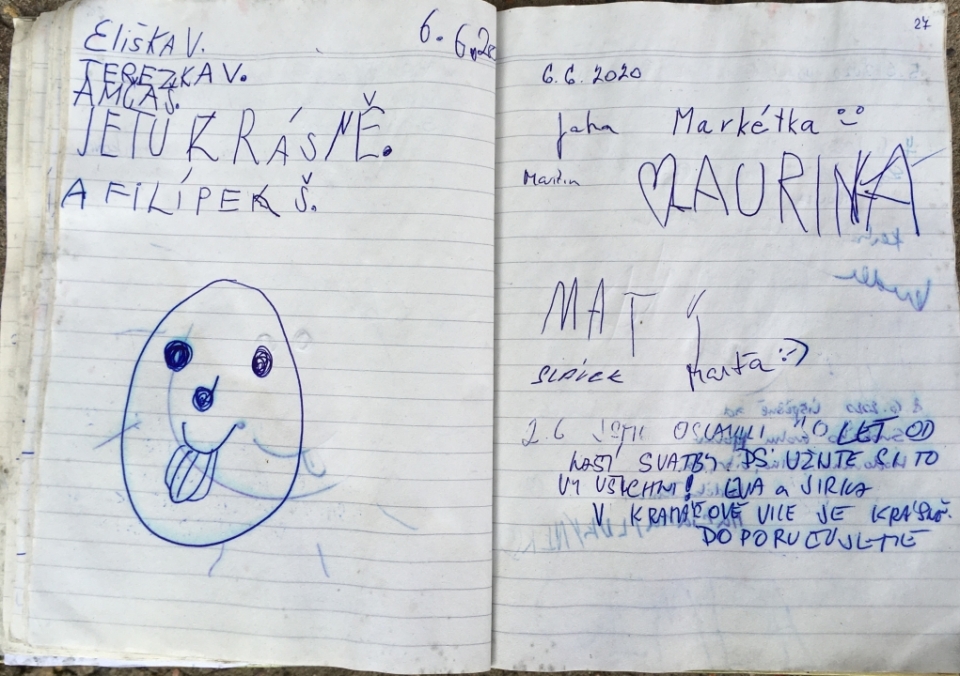 Eliška V.
6. 6. 20
TEREZKA V.
AMČA Š.
JE TU KRÁSNĚ.
A FILÍPEK Š.
27
6.6. 2020
Jana Markétka
Martin LAURINKA
MATÝ
SLÁVEK Marťa :-)
2.6 JSME OSLAVILI 40 LET OD
NAŠÍ SVATBY PS UŽIJTE SI TO
VY VŠICHNI! EVA a JIRKA
V KRAMÁŘOVĚ VILE JE KRÁSNĚ.
DOPORUČUJEME